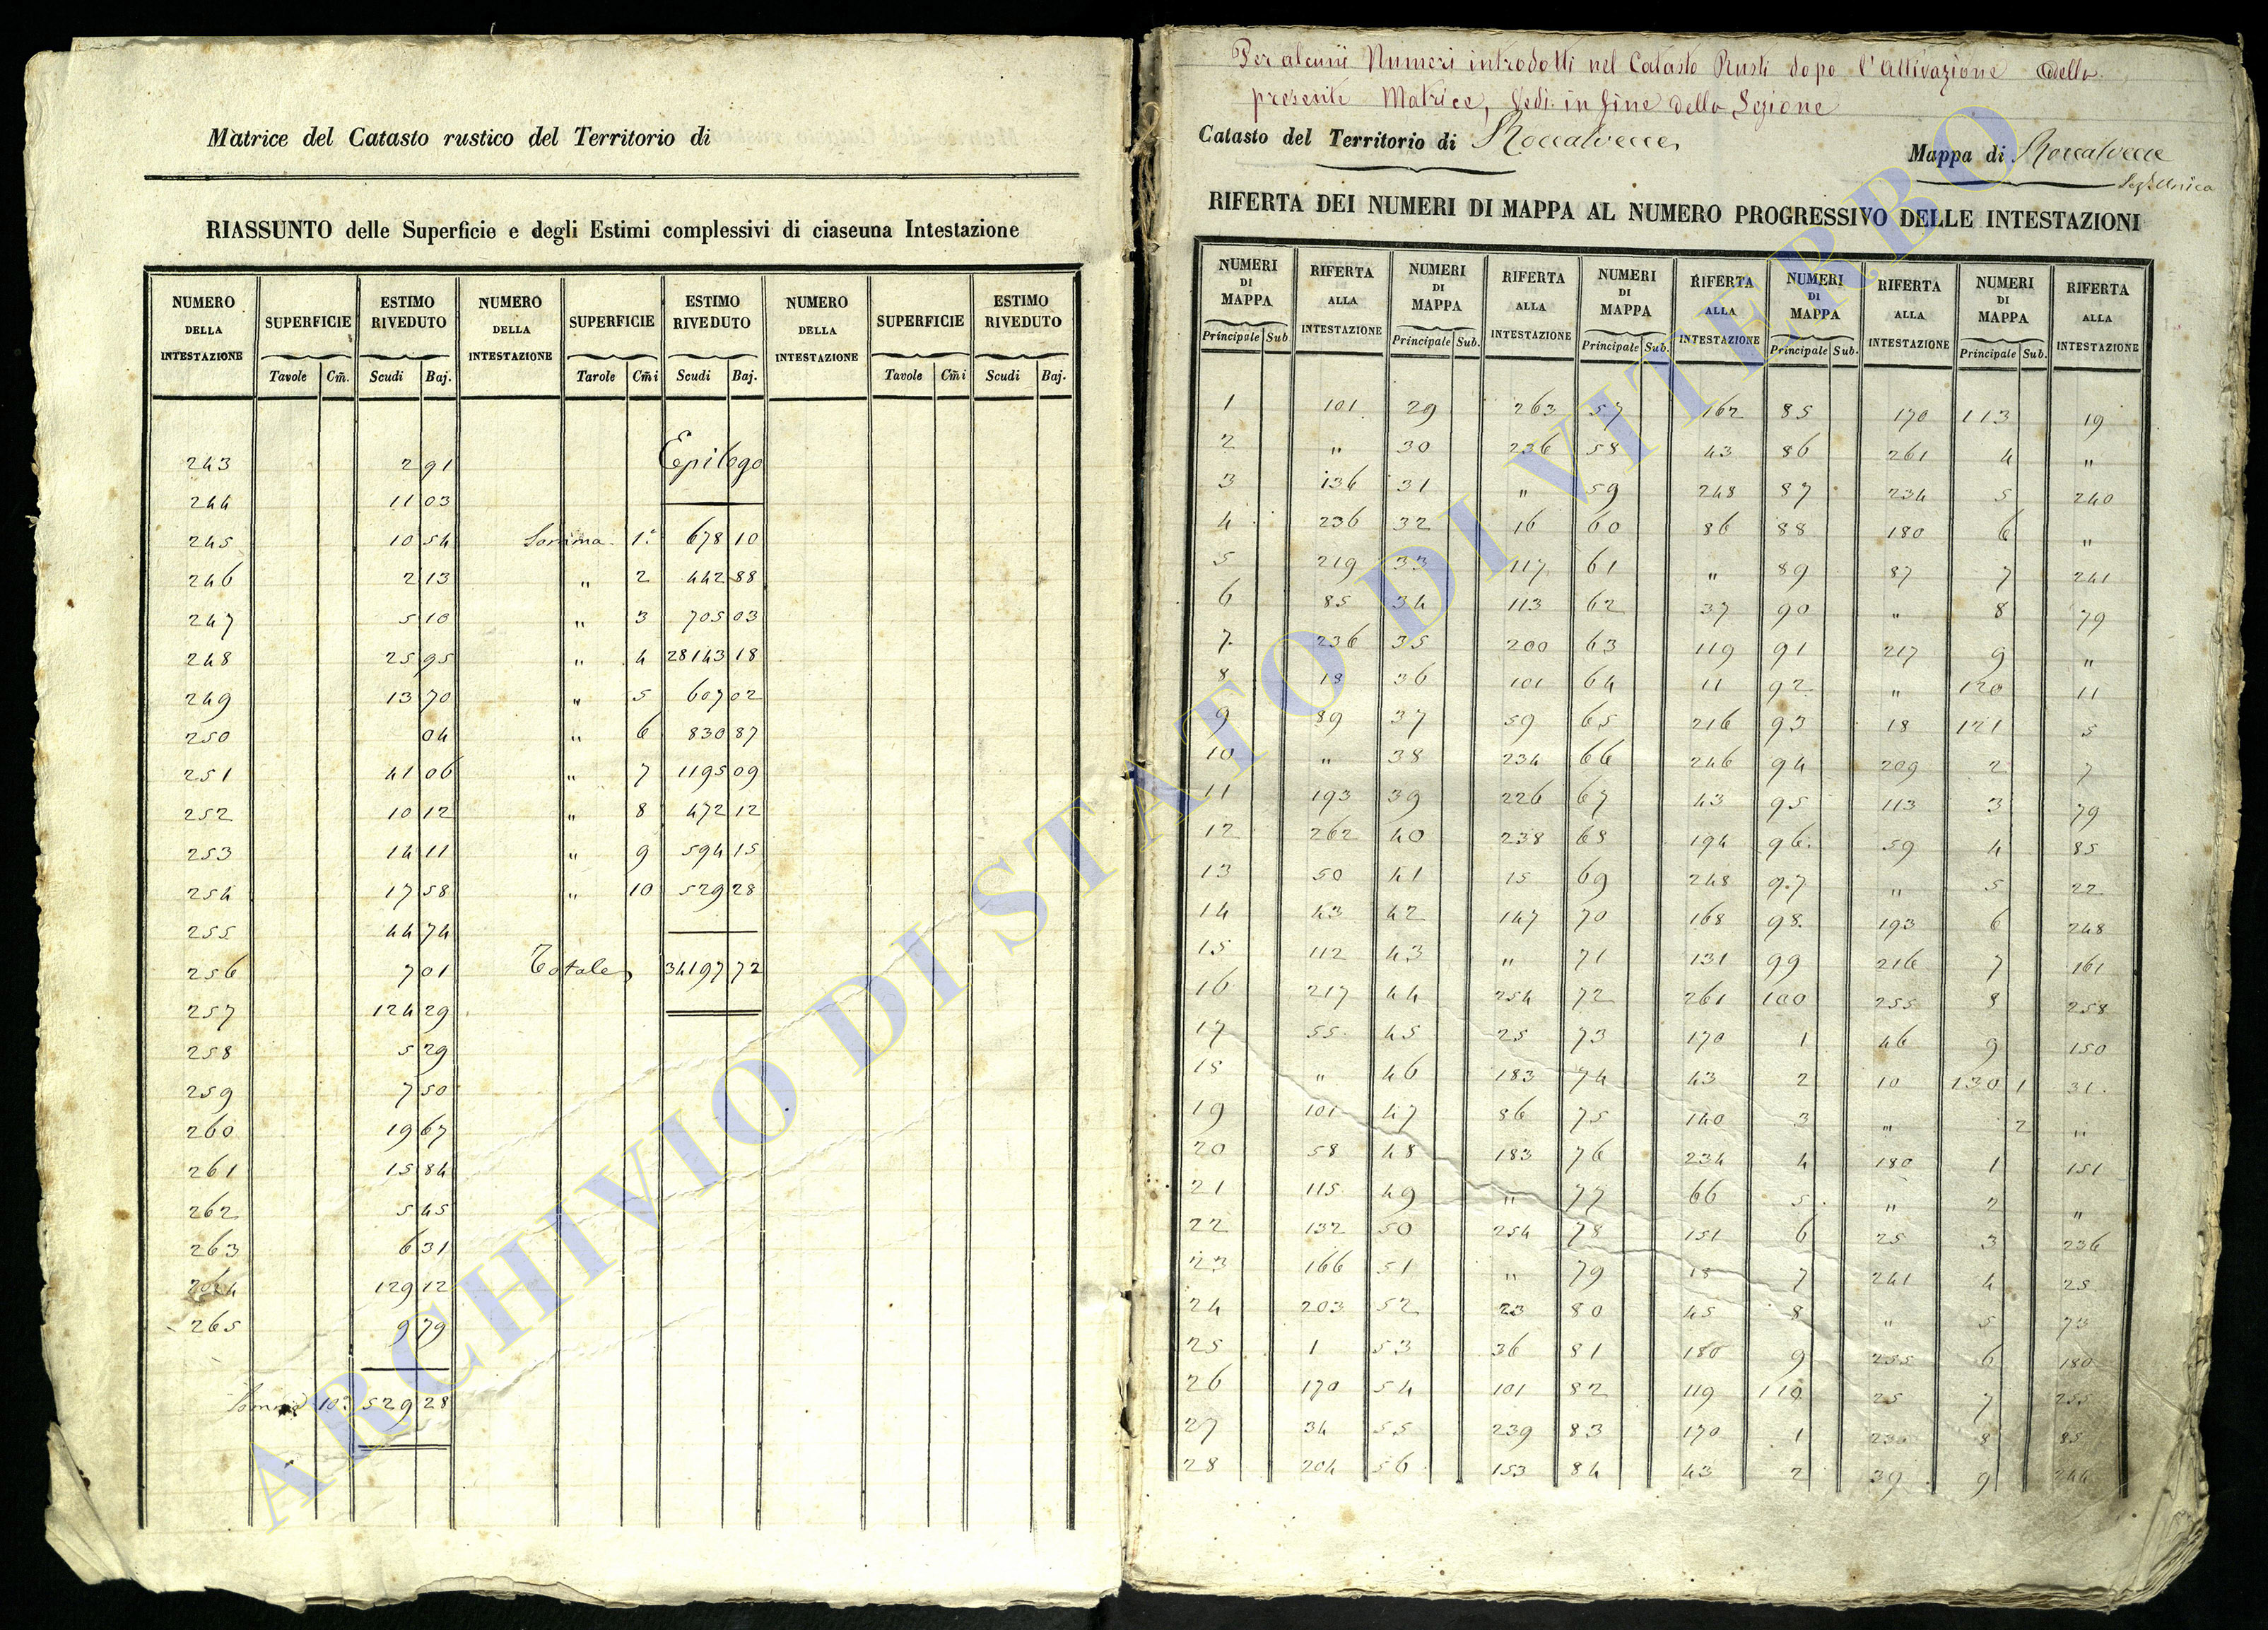 Matrice del Catasto rustico del Territorio di
RIASSUNTO delle Superficie e degli Estimi complessivi di ciaseuna Intestazione
NUMERO DELLA INTESTAZIONE SUPERFICIE ESTIMO RIVEDUTO NUMERO DELLA INTESTAZIONE SUPERFICIE ESTIMO RIVEDUTO NUMERO DELLA INTESTAZIONE SUPERFICIE ESTIMO RIVEDUTO
Tavole Cm̄. Scudi Baj. Tavole Cm̄i Scudi Baj. Tavole Cm̄i Scudi Baj.
243 2 91 Epilogo
244 11 03
245 10 54 Somma 1.a 678 10
246 2 13 " 2 442 88
247 5 10 " 3 705 03
248 25 95 " 4 28143 18
249 13 70 " 5 607 02
250 04 " 6 830 87
251 41 06 " 7 1195 09
252 10 12 " 8 472 12
253 14 11 " 9 594 15
254 17 58 " 10 529 28
255 44 74
256 7 01 Totale 34197 72
257 124 29
258 5 29
259 7 50
260 19 67
261 15 84
262 5 45
263 6 31
264 129 12
265 9 79
Somma 10.a 529 28
Per alcuni Numeri introdotti nel Catasto Rusti dopo l'attivazione della
presente Matrice, Vedi in fine della Sezione
Catasto del Territorio di Roccalvecce Mappa di Roccalvecce
Sez. Unica
RIFERTA DEI NUMERI DI MAPPA AL NUMERO PROGRESSIVO DELLE INTESTAZIONI
NUMERI DI MAPPA RIFERTA ALLA INTESTAZIONE NUMERI DI MAPPA RIFERTA ALLA INTESTAZIONE NUMERI DI MAPPA RIFERTA ALLA INTESTAZIONE NUMERI DI MAPPA RIFERTA ALLA INTESTAZIONE NUMERI DI MAPPA RIFERTA ALLA INTESTAZIONE
Principale Sub Principale Sub. Principale Sub. Principale Sub. Principale Sub.
1 101 29 263 57 162 85 170 113 19
2 " 30 236 58 43 86 261 4 "
3 136 31 " 59 248 87 234 5 240
4 236 32 16 60 86 88 180 6 "
5 219 33 117 61 " 89 87 7 241
6 85 34 113 62 37 90 " 8 79
7 236 35 200 63 119 91 217 9 "
8 18 36 101 64 11 92 " 120 11
9 89 37 59 65 216 93 18 121 5
10 " 38 234 66 246 94 209 2 7
11 193 39 226 67 43 95 113 3 79
12 262 40 238 68 194 96 59 4 85
13 50 41 15 69 248 97 " 5 22
14 43 42 147 70 168 98 193 6 248
15 112 43 " 71 131 99 216 7 161
16 217 44 254 72 261 100 255 8 258
17 55 45 25 73 170 1 46 9 150
18 " 46 183 74 43 2 10 130 1 31
19 101 47 86 75 140 3 " 2 "
20 58 48 183 76 234 4 180 1 151
21 115 49 " 77 66 5 " 2 "
22 132 50 254 78 151 6 25 3 236
23 166 51 " 79 18 7 241 4 25
24 203 52 23 80 45 8 " 5 73
25 1 53 36 81 180 9 255 6 180
26 170 54 101 82 119 110 25 7 255
27 34 55 239 83 170 1 8 85
28 204 56 153 84 43 2 39 9 244
ARCHIVIO DI STATO DI VITERBO